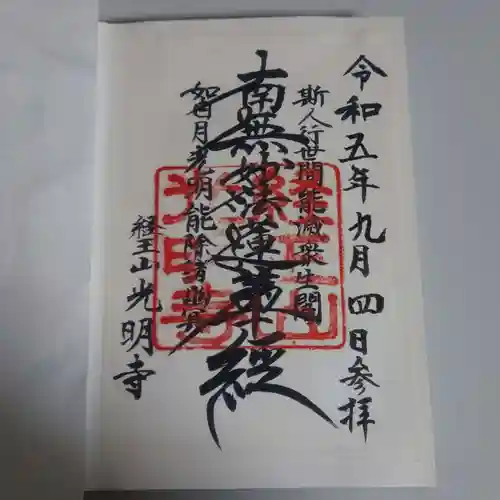 令和五年九月四日参拝
斯人行世間能滅衆生闇
南無妙法蓮華経
如日月光明能除諸幽冥
経王山光明寺
経王山
光明寺